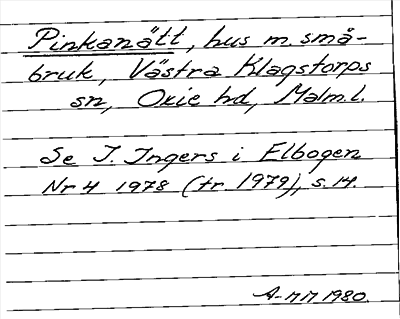 Pinkanätt, hus m. små-
bruk, Västra Klagstorps
sn, Oxie hd, Malm.l.
Se I. Ingers i Elbogen
Nr 4 1978 (tr. 1979), s. 14.
1980.